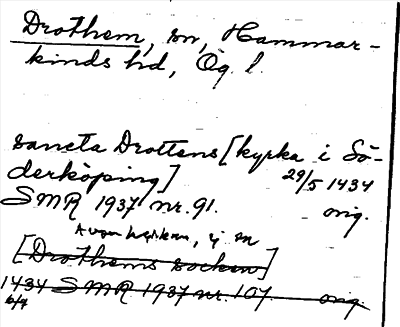 Drothem, sn, Hammar-
kinds hd, Ög. l.
sancta Drottens [kyrka i Sö-
derköping] 29/5 1434
SMR 1937 nr. 91. orig.
Avser kyrkan, ej sn
[Drothems socken]
1434 SMR 1937 nr. 107. orig.
6/7